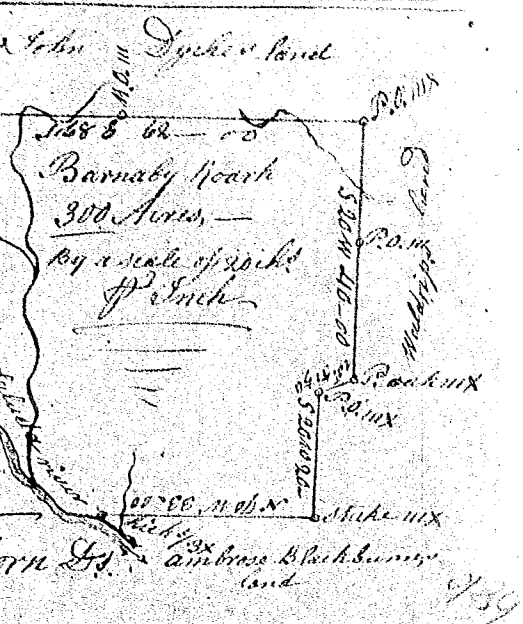 John Dycke's land
B.O. III
P.O. IIIX
S 68 E 62 — 00
Barnaby Roark
300 Acres, —
By a scale of 20 chs
P Inch
S 20 W 40-00
P.O. III
Waldrip's land
P. oak IIIX
P.O. IIIX
S 20 W 20
Saluda river
N 70 W 33.00
Hick 3X
Stake IIIX
orn Ds.
ambrose Blackburn's
land